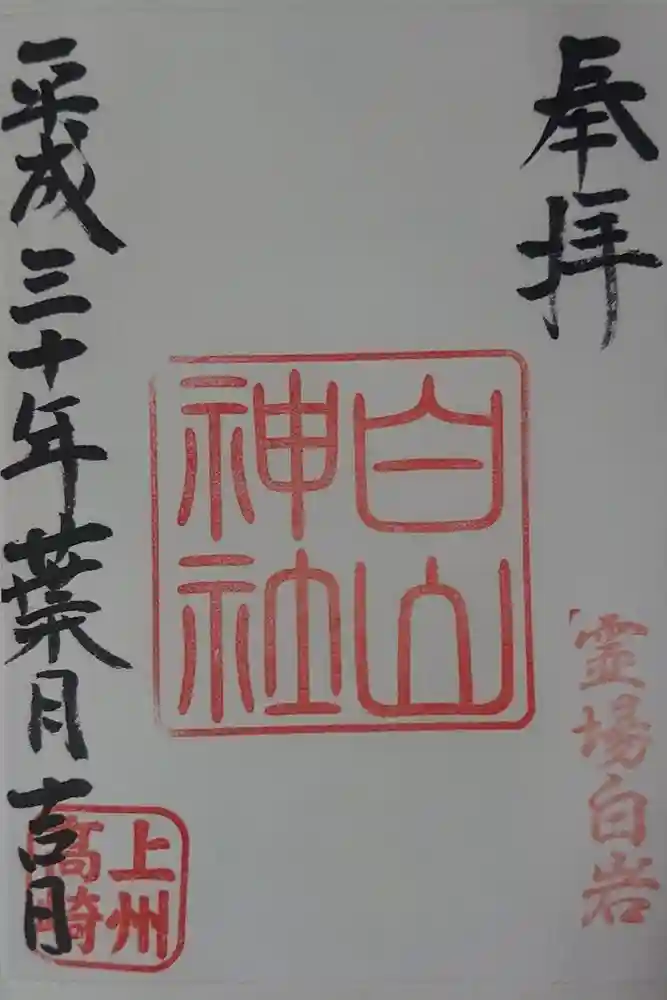 奉拝
霊場白岩
白山
神社
平成三十年葉月吉月
上州
高崎